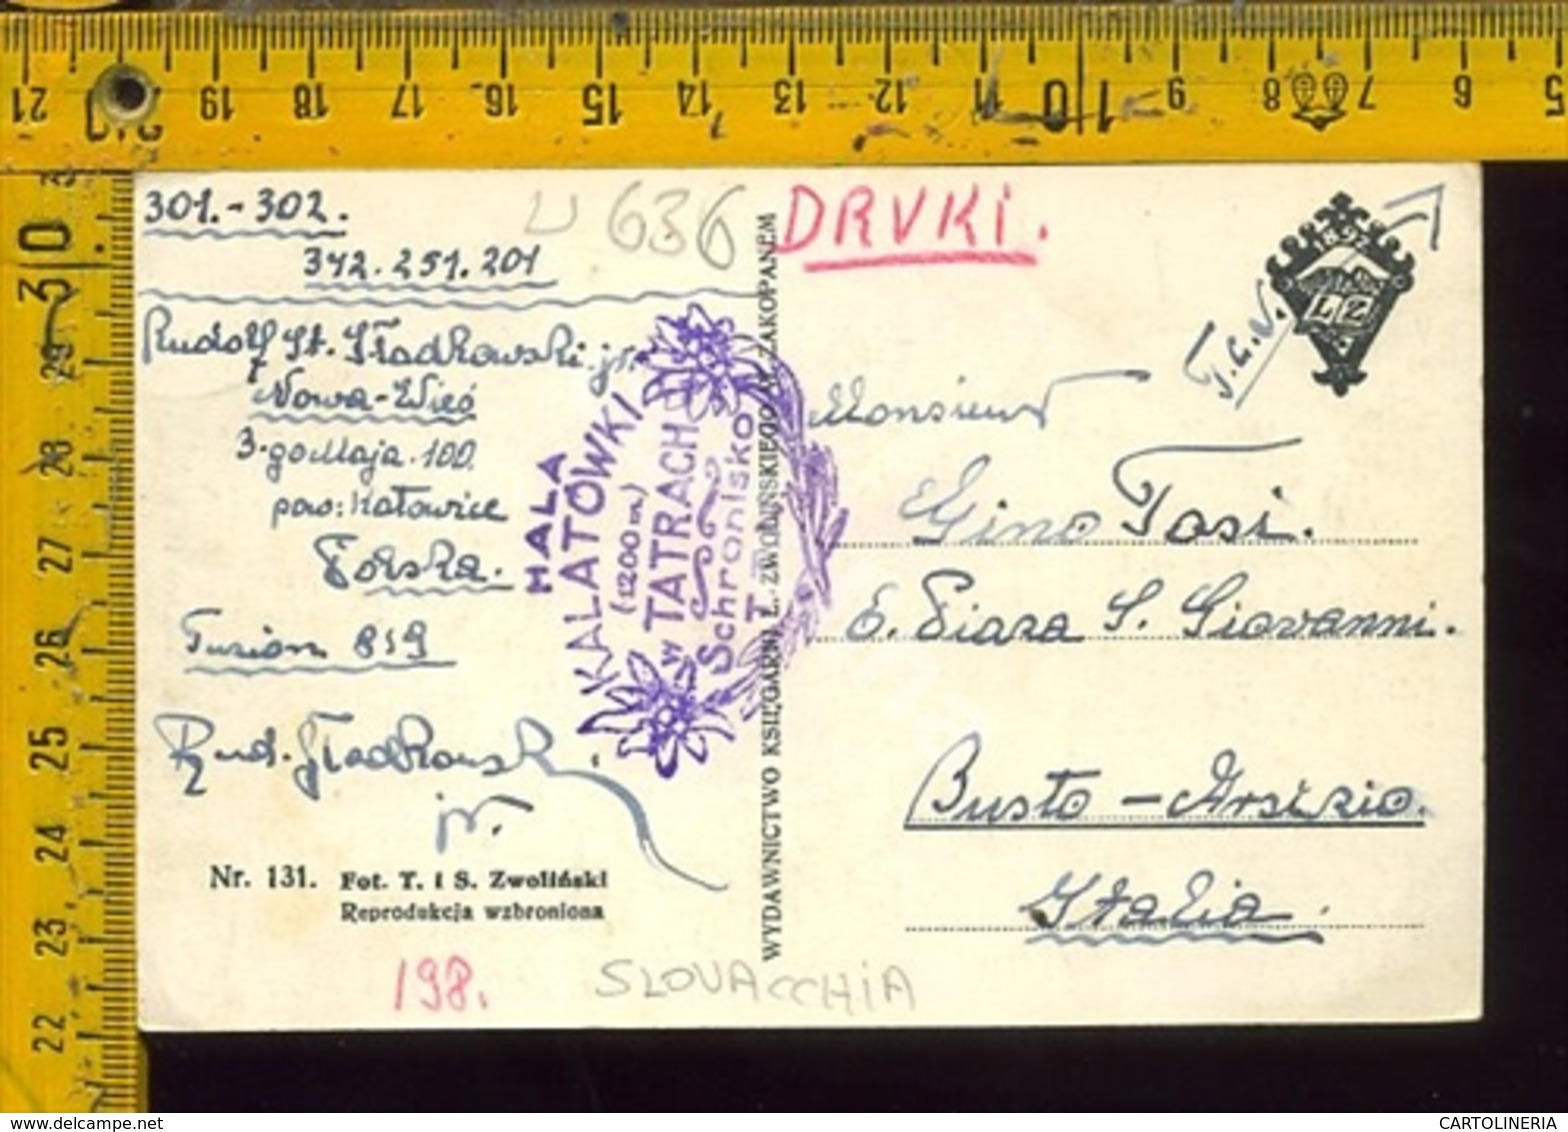 21 20 19 18 17 16 15 14 13 12 11 10 9 8 7 6 5
30 29 28 27 26 25 24 23 22
301.-302.
342.251.201
U 636
Rudolf St. Władkowski jr.
Nowa-Wieś
3-go Maja 100.
pow: Katowice
Polska.
Tuzion 859
Rud. Władkowski
jr.
Nr. 131. Fot. T. i S. Zwoliński
Reprodukcja wzbroniona
198.
SLOVACCHIA
HALA
KALATÓWKI
(1200 m)
w TATRACH
Schronisko
WYDAWNICTWO KSIĘGARNI L. ZWOLIŃSKIEGO W ZAKOPANEM
DRVKI.
LZ
T.C.N.
Monsieur
Gino Tosi.
6. Piaza S. Giovanni.
Busto - Arsizio.
Italia.
CARTOLINERIA